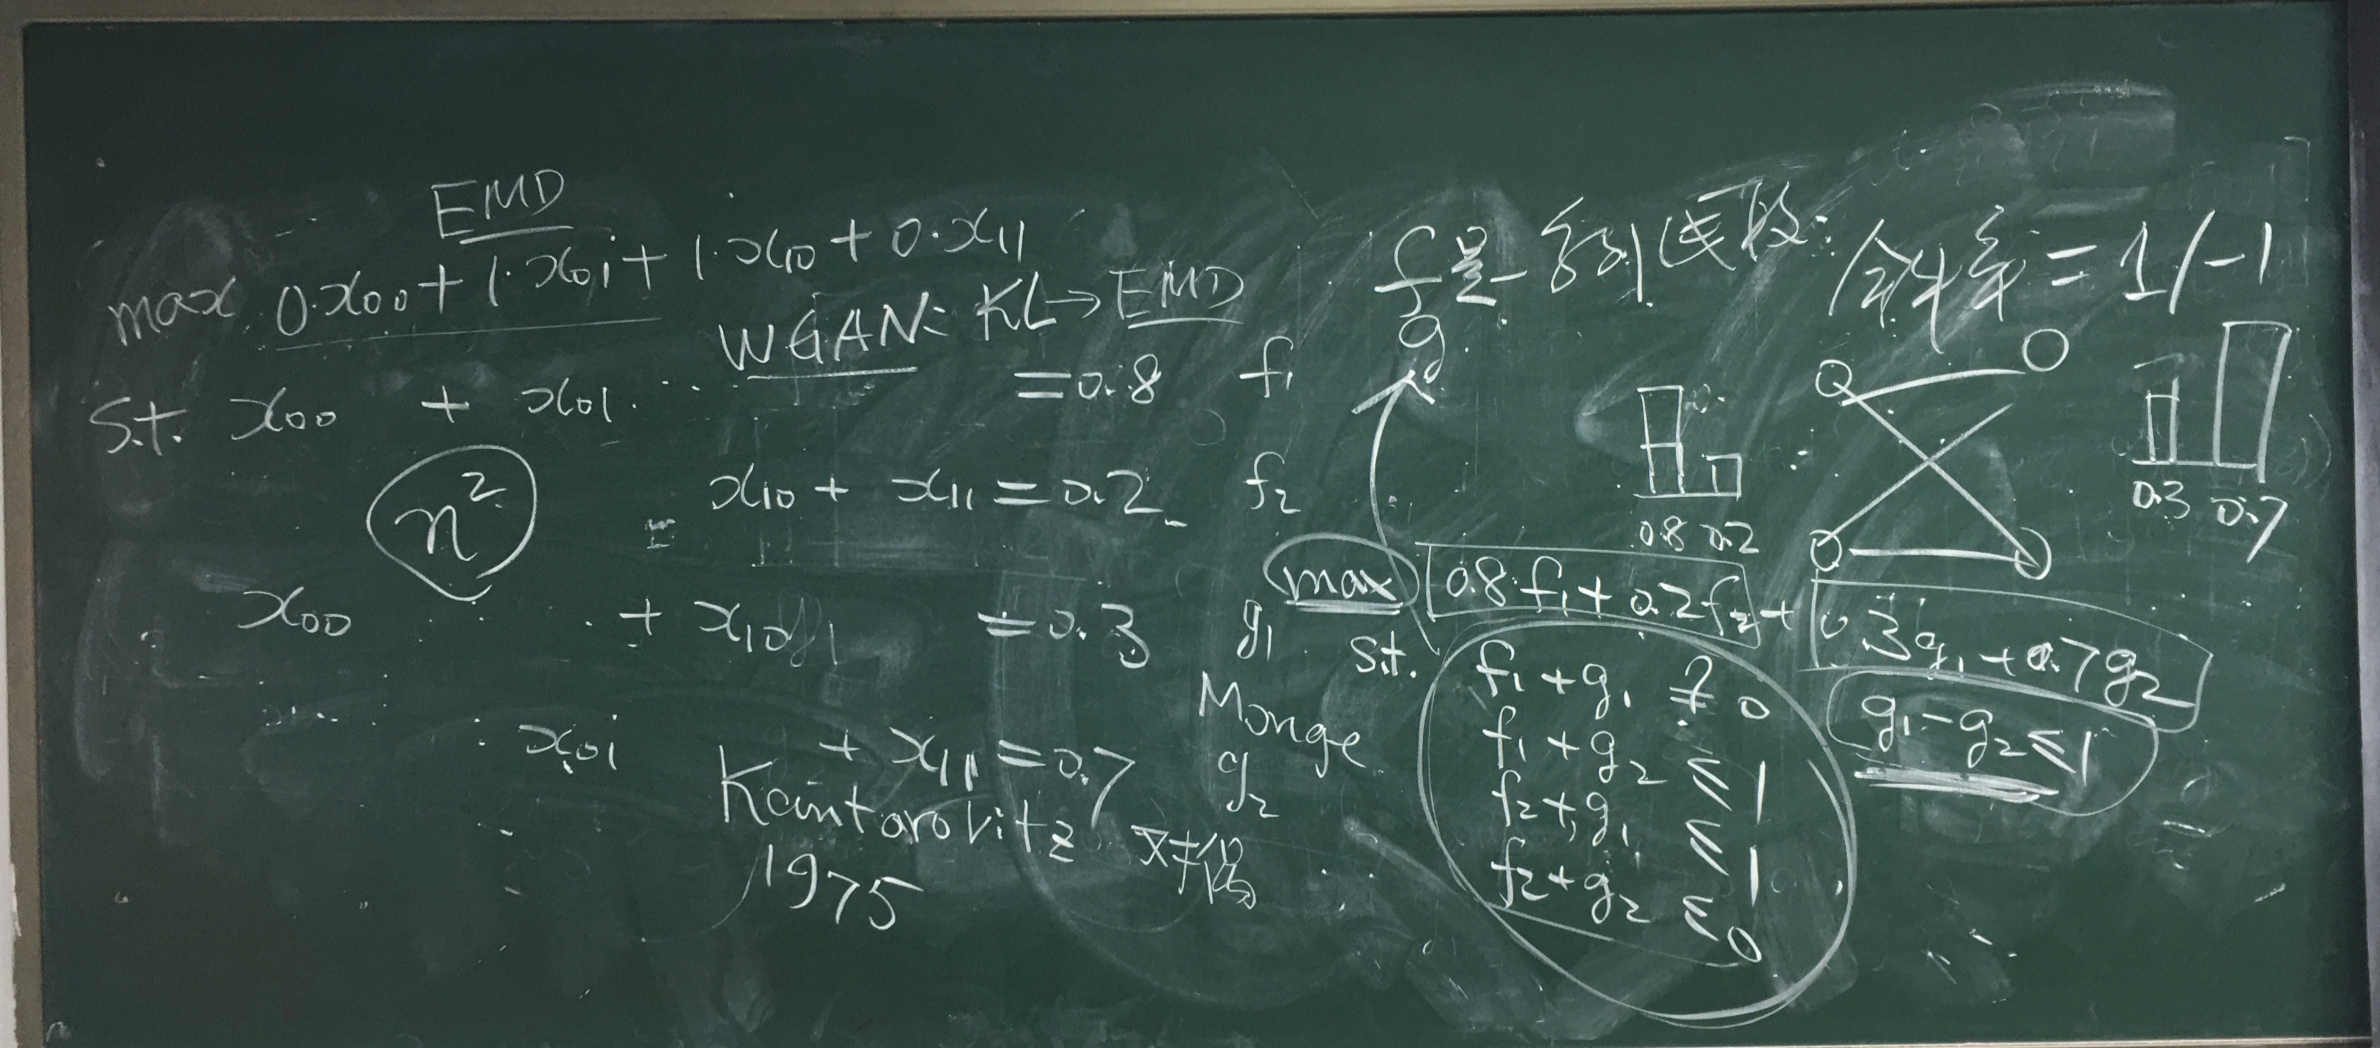 EMD
max 0·x00 + 1·x01 + 1·x10 + 0·x11
WGAN: KL → EMD
s.t. x00 + x01 = 0.8 f1
n²
x10 + x11 = 0.2 f2
x00 + x10 = 0.3 g1
x01 + x11 = 0.7 g2
Monge
Kantorovitz 对偶
1975
f是一系列线段: 斜率 = 1/-1
g
0.8 0.2
0.3 0.7
max 0.8f1 + 0.2f2 + 0.3g1 + 0.7g2
s.t. f1 + g1 ≤ 0
f1 + g2 ≤ 1
f2 + g1 ≤ 1
f2 + g2 ≤ 0
g1 - g2 ≤ 1